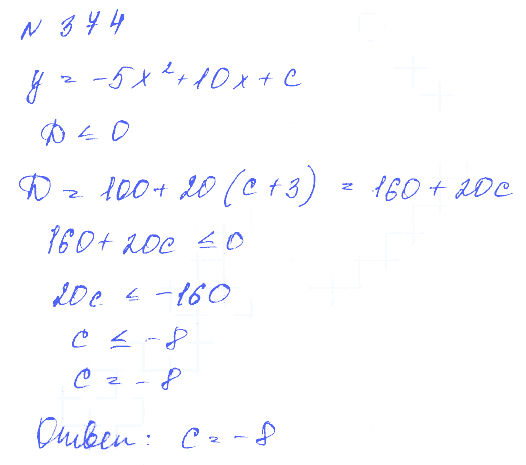 N 374
y = -5x² + 10x + c
D ≤ 0
D = 100 + 20(c + 3) = 160 + 20c
160 + 20c ≤ 0
20c ≤ -160
c ≤ -8
c = -8
Ответ: c = -8